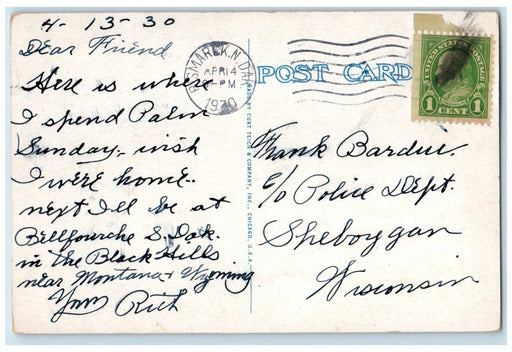 4-13-30
Dear Friend
Here is where
I spend Palm
Sunday, wish
I were home.
next I'll be at
Bellfourche S. Dak.
in the Black Hills
near Montana & Wyoming
Rich
BISMARCK, N. DAK.
APR 14
PM
1930
POST CARD
MADE BY CURT TEICH & COMPANY, INC., CHICAGO, U.S.A.
UNITED STATES POSTAGE
1 1
CENT
Frank Bardue.
c/o Police Dept.
Sheboygan
Wisconsin